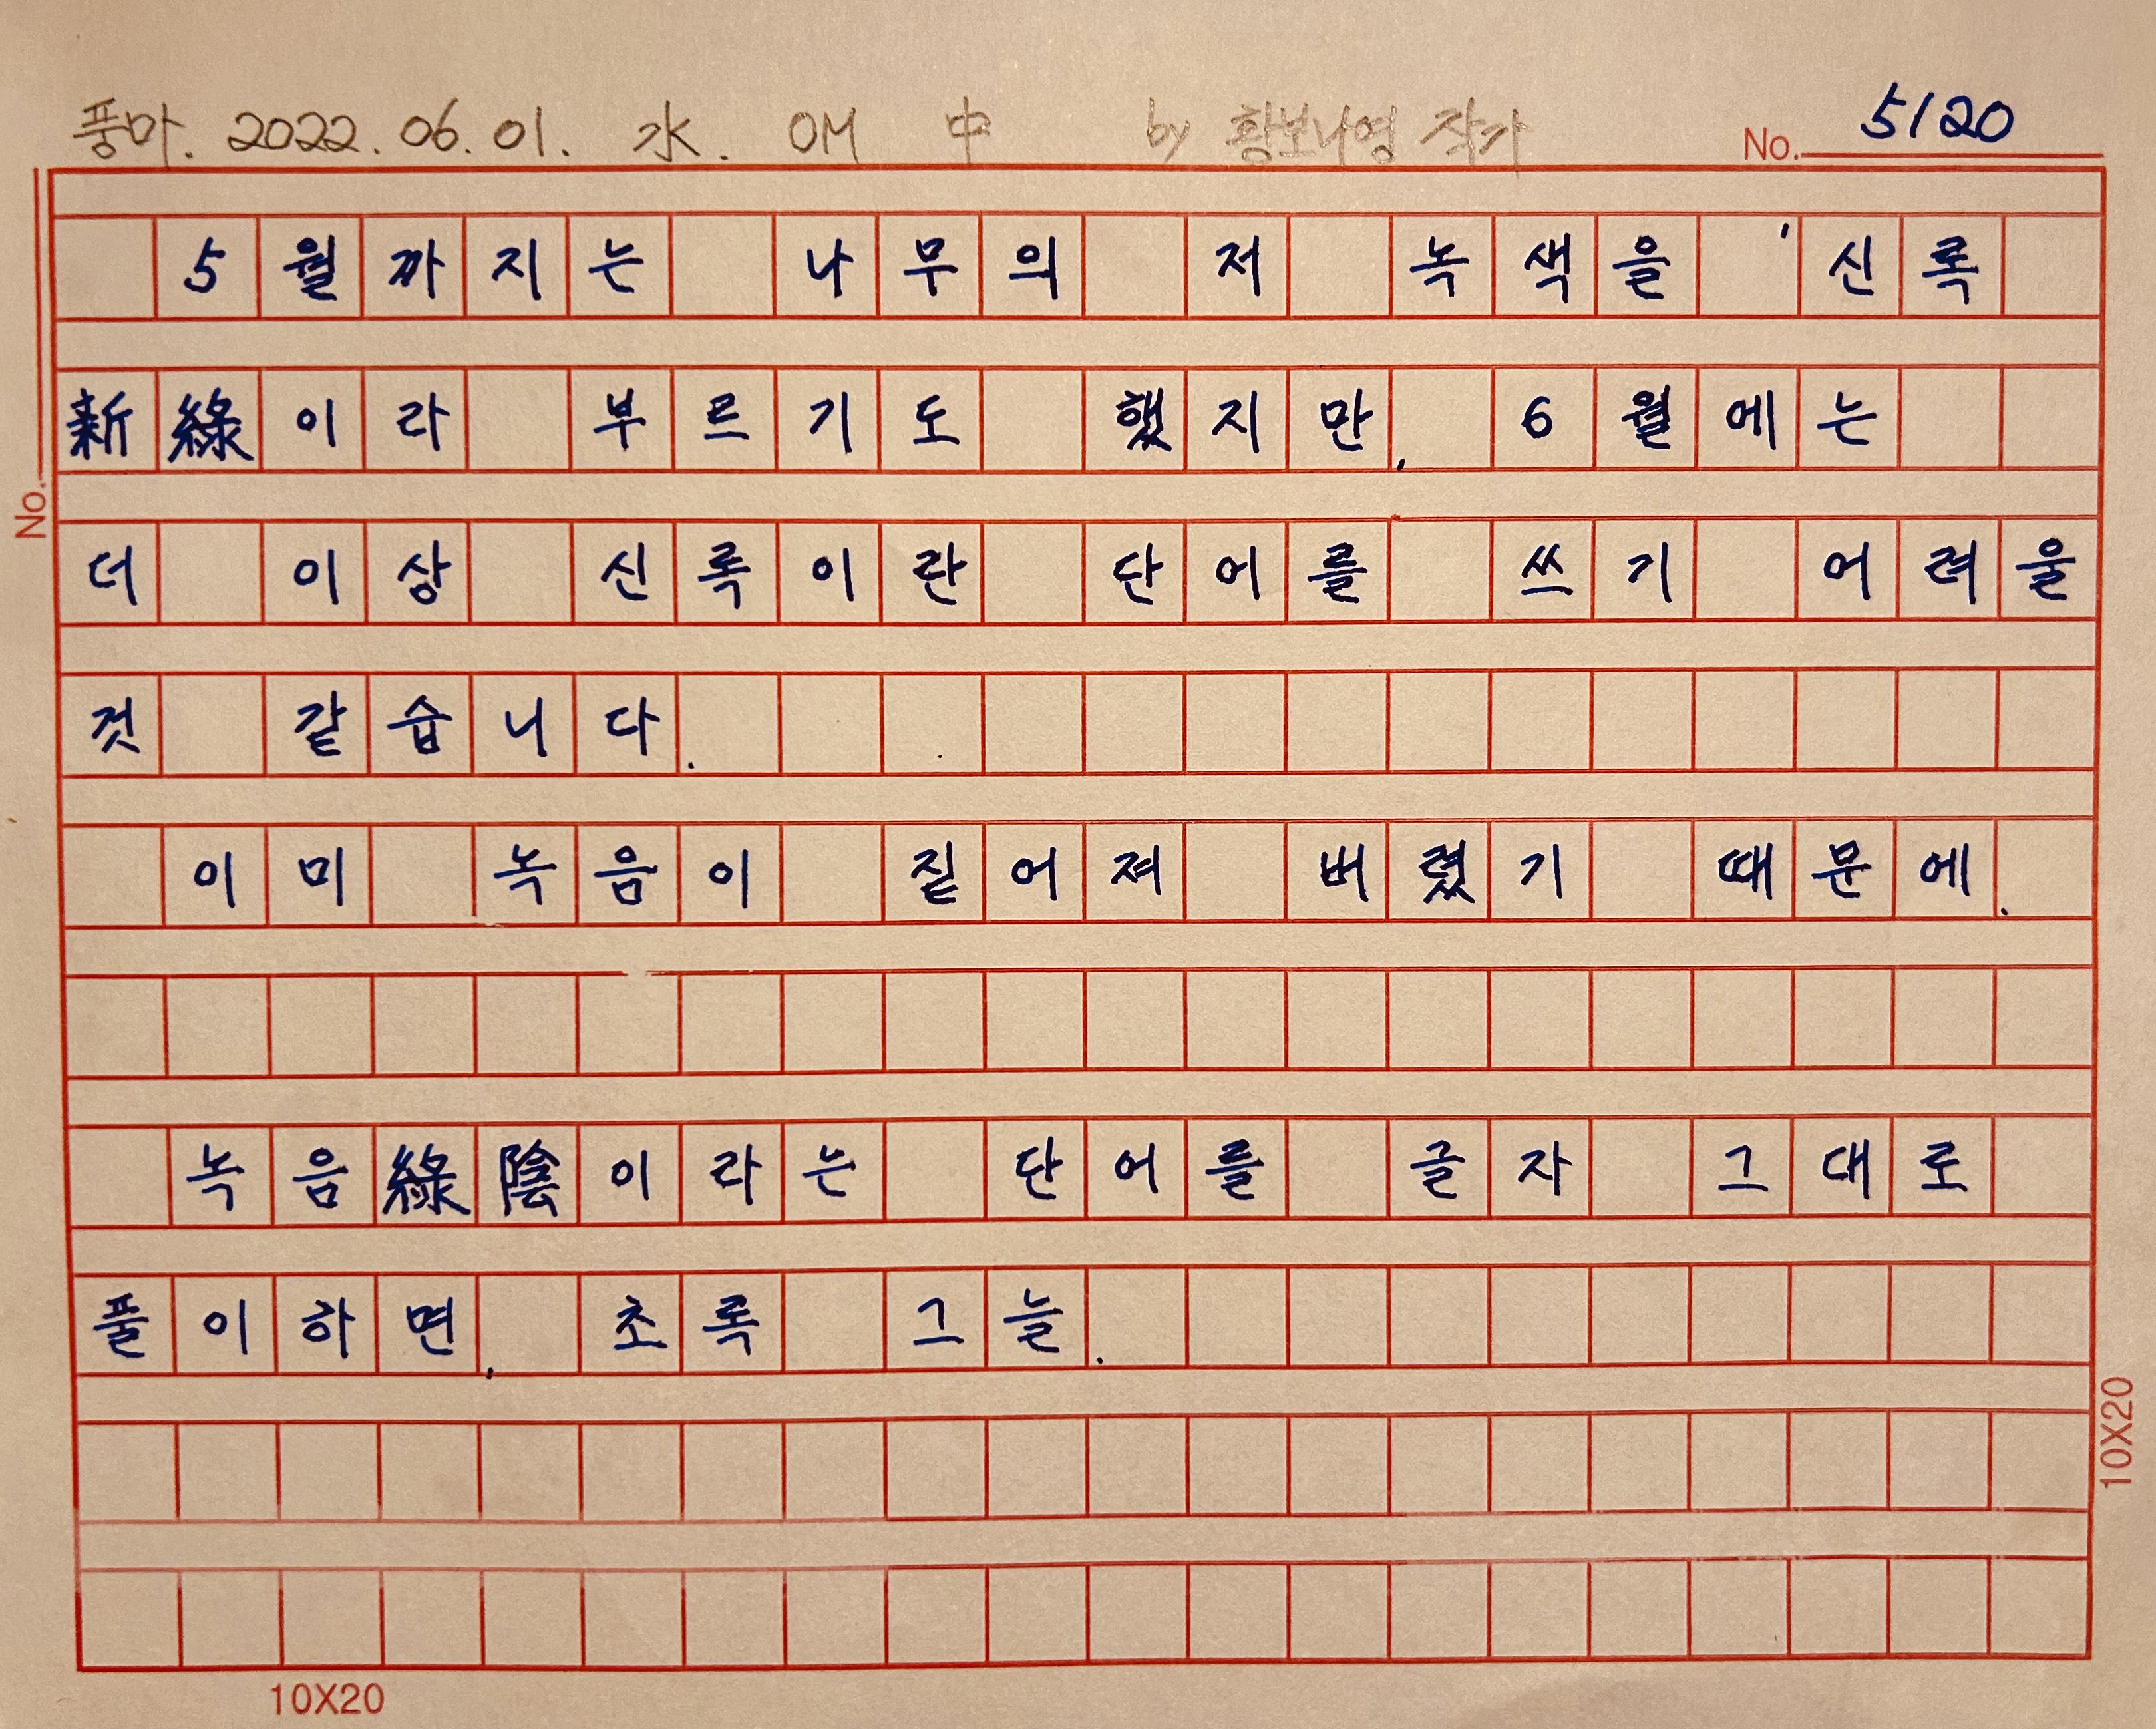 풍마. 2022. 06. 01. 水. OM 中 by 황보나영 작가
No. 5120
5월까지는 나무의 저 녹색을 '신록
新綠이라 부르기도 했지만, 6월에는
더 이상 신록이란 단어를 쓰기 어려울
것 같습니다.
이미 녹음이 짙어져 버렸기 때문에.
녹음綠陰이라는 단어를 글자 그대로
풀이하면, 초록 그늘.
No.
10X20
10X20